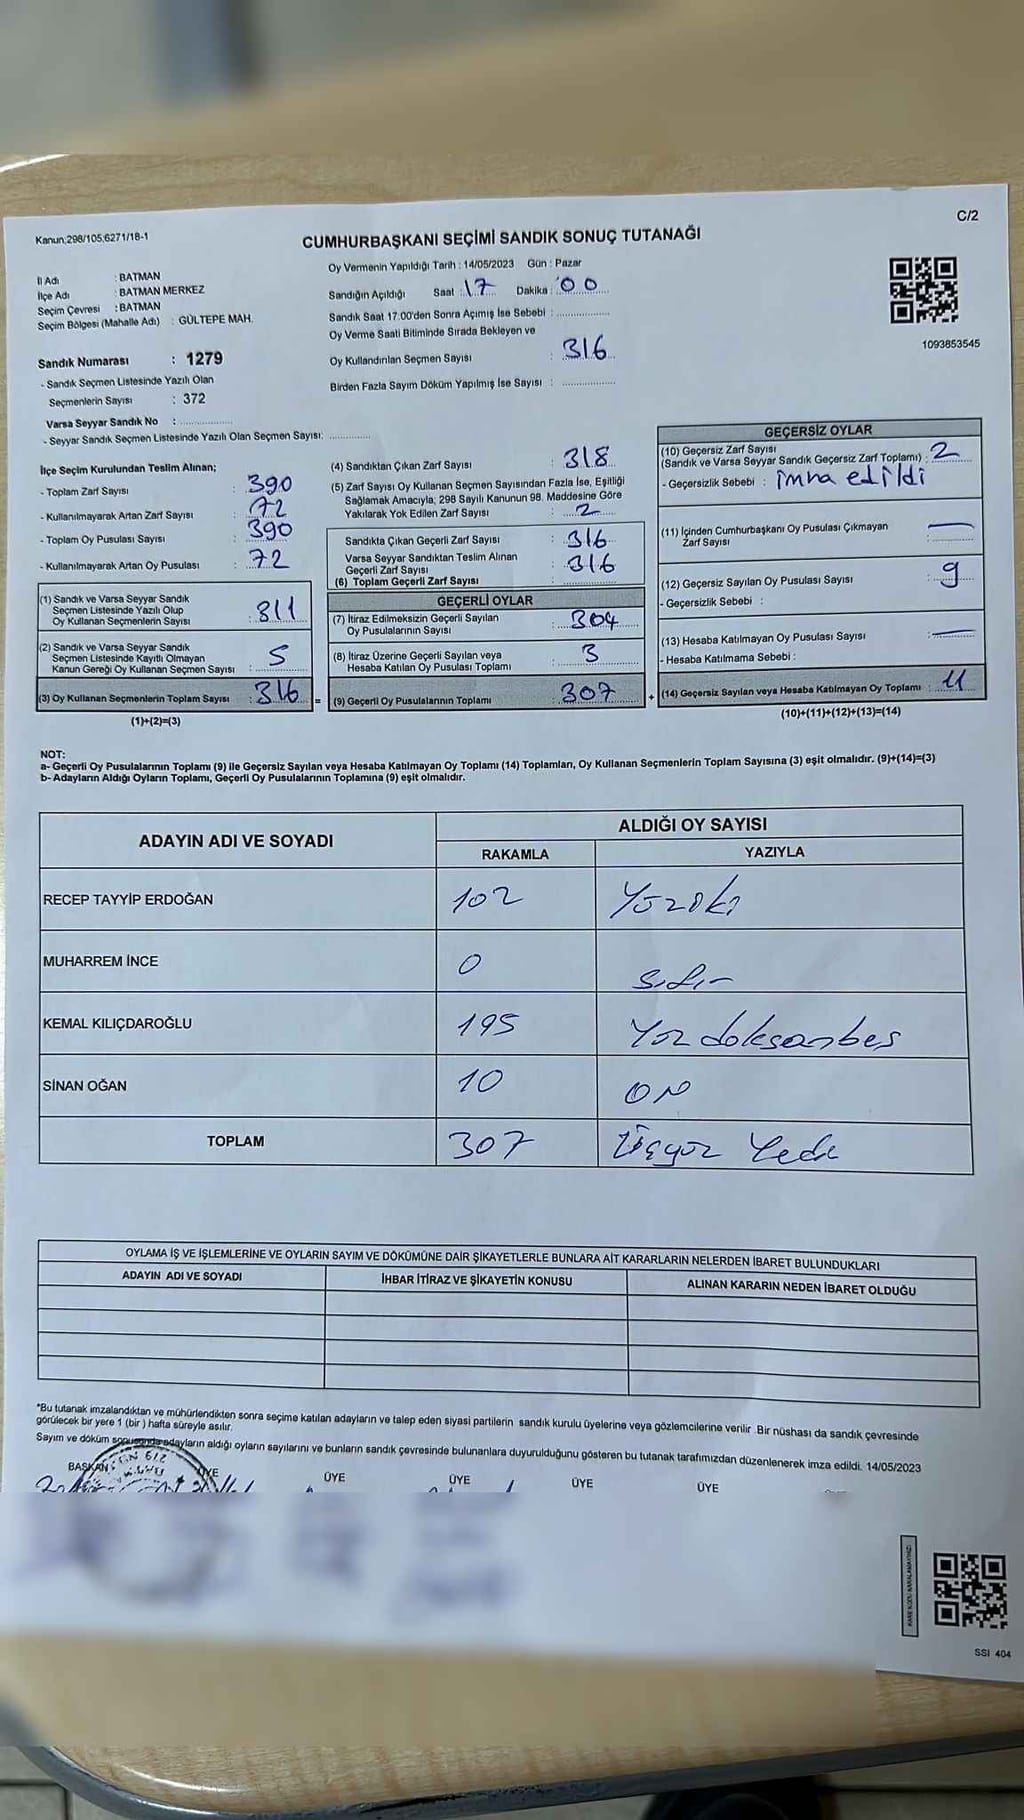 C/2
Kanun;298/105;6271/18-1
CUMHURBAŞKANI SEÇİMİ SANDIK SONUÇ TUTANAĞI
İl Adı : BATMAN
İlçe Adı : BATMAN MERKEZ
Seçim Çevresi : BATMAN
Seçim Bölgesi (Mahalle Adı) : GÜLTEPE MAH.
Sandık Numarası : 1279
- Sandık Seçmen Listesinde Yazılı Olan
Seçmenlerin Sayısı : 372
Varsa Seyyar Sandık No : ..............
- Seyyar Sandık Seçmen Listesinde Yazılı Olan Seçmen Sayısı: ..............
Oy Vermenin Yapıldığı Tarih : 14/05/2023 Gün : Pazar
Sandığın Açıldığı Saat : 17 Dakika : 00
Sandık Saat 17:00'den Sonra Açımış İse Sebebi : ..............
Oy Verme Saati Bitiminde Sırada Bekleyen ve
Oy Kullandırılan Seçmen Sayısı : 316
Birden Fazla Sayım Döküm Yapılmış İse Sayısı : ..............
1093853545
İlçe Seçim Kurulundan Teslim Alınan;
- Toplam Zarf Sayısı : 390
- Kullanılmayarak Artan Zarf Sayısı : 72
- Toplam Oy Pusulası Sayısı : 390
- Kullanılmayarak Artan Oy Pusulası : 72
(1) Sandık ve Varsa Seyyar Sandık
Seçmen Listesinde Yazılı Olup
Oy Kullanan Seçmenlerin Sayısı : 311
(2) Sandık ve Varsa Seyyar Sandık
Seçmen Listesinde Kayıtlı Olmayan
Kanun Gereği Oy Kullanan Seçmen Sayısı : 5
(3) Oy Kullanan Seçmenlerin Toplam Sayısı : 316 =
(1)+(2)=(3)
(4) Sandıktan Çıkan Zarf Sayısı : 318
(5) Zarf Sayısı Oy Kullanan Seçmen Sayısından Fazla İse, Eşitliği
Sağlamak Amacıyla; 298 Sayılı Kanunun 98. Maddesine Göre
Yakılarak Yok Edilen Zarf Sayısı : 2
Sandıkta Çıkan Geçerli Zarf Sayısı : 316
Varsa Seyyar Sandıktan Teslim Alınan
Geçerli Zarf Sayısı : 316
(6) Toplam Geçerli Zarf Sayısı : ..............
GEÇERLİ OYLAR
(7) İtiraz Edilmeksizin Geçerli Sayılan
Oy Pusulalarının Sayısı : 304
(8) İtiraz Üzerine Geçerli Sayılan veya
Hesaba Katılan Oy Pusulası Toplamı : 3
(9) Geçerli Oy Pusulalarının Toplamı : 307 +
GEÇERSİZ OYLAR
(10) Geçersiz Zarf Sayısı
(Sandık ve Varsa Seyyar Sandık Geçersiz Zarf Toplamı) : 2
- Geçersizlik Sebebi : imha edildi
(11) İçinden Cumhurbaşkanı Oy Pusulası Çıkmayan
Zarf Sayısı : —
(12) Geçersiz Sayılan Oy Pusulası Sayısı : 9
- Geçersizlik Sebebi :
(13) Hesaba Katılmayan Oy Pusulası Sayısı : —
- Hesaba Katılmama Sebebi :
(14) Geçersiz Sayılan veya Hesaba Katılmayan Oy Toplamı : 11
(10)+(11)+(12)+(13)=(14)
NOT:
a- Geçerli Oy Pusulalarının Toplamı (9) ile Geçersiz Sayılan veya Hesaba Katılmayan Oy Toplamı (14) Toplamları, Oy Kullanan Seçmenlerin Toplam Sayısına (3) eşit olmalıdır. (9)+(14)=(3)
b- Adayların Aldığı Oyların Toplamı, Geçerli Oy Pusulalarının Toplamına (9) eşit olmalıdır.
ADAYIN ADI VE SOYADI
ALDIĞI OY SAYISI
RAKAMLA YAZIYLA
RECEP TAYYİP ERDOĞAN 102 Yüziki
MUHARREM İNCE 0 Sıfır
KEMAL KILIÇDAROĞLU 195 Yüz doksanbeş
SİNAN OĞAN 10 ON
TOPLAM 307 Üçyüz Yedi
OYLAMA İŞ VE İŞLEMLERİNE VE OYLARIN SAYIM VE DÖKÜMÜNE DAİR ŞİKAYETLERLE BUNLARA AİT KARARLARIN NELERDEN İBARET BULUNDUKLARI
ADAYIN ADI VE SOYADI İHBAR İTİRAZ VE ŞİKAYETİN KONUSU ALINAN KARARIN NEDEN İBARET OLDUĞU
*Bu tutanak imzalandıktan ve mühürlendikten sonra seçime katılan adayların ve talep eden siyasi partilerin sandık kurulu üyelerine veya gözlemcilerine verilir. Bir nüshası da sandık çevresinde
görülecek bir yere 1 (bir ) hafta süreyle asılır.
Sayım ve döküm sonucunda adayların aldığı oyların sayılarını ve bunların sandık çevresinde bulunanlara duyurulduğunu gösteren bu tutanak tarafımızdan düzenlenerek imza edildi. 14/05/2023
BAŞKAN ÜYE ÜYE ÜYE ÜYE ÜYE
SSI 404